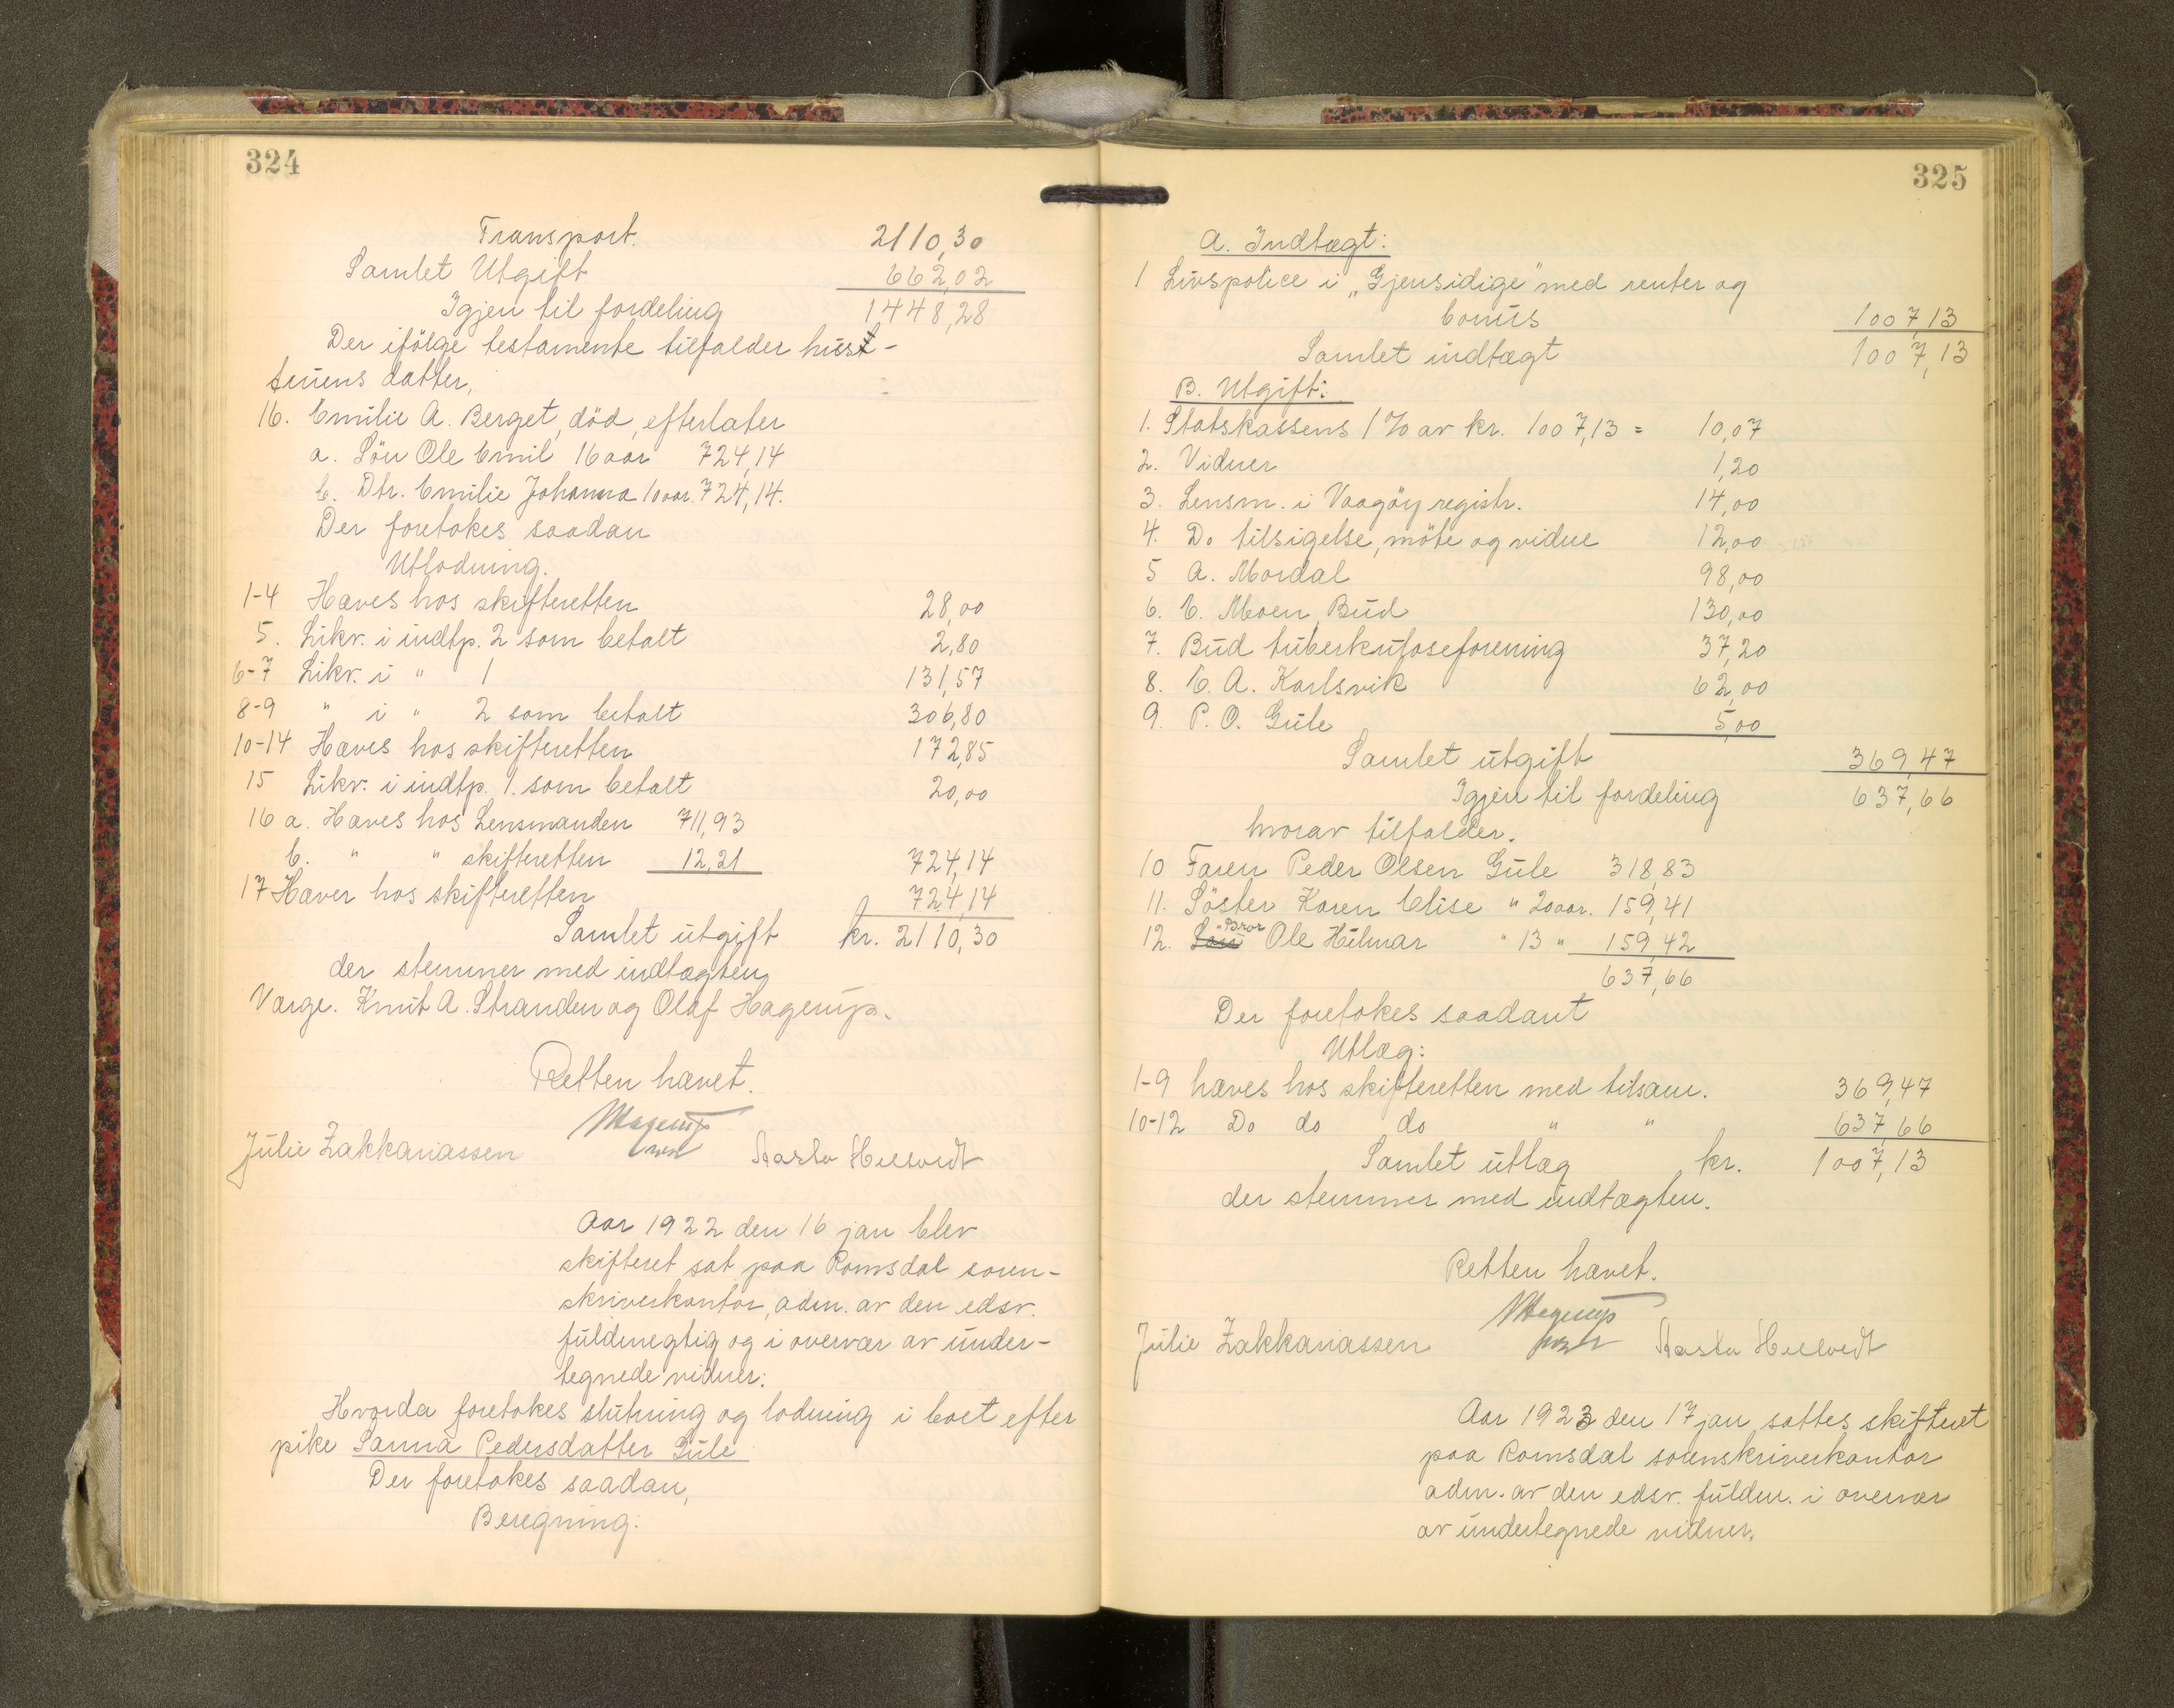 324
Transport. 2110,30
Samlet Utgift 662,02
Igjen til fordeling 1448,28
Der ifölge testamente tilfalder hust-
ruens datter,
16. Emilie A. Berget, död, efterlater
a. Sön Ole Emil 16 aar 724,14
b. Dtr. Emilie Johanna 10 aar. 724,14.
Der foretokes saadan
Utlodning.
1-4 Hæves hos skifteretten 28,00
5. Likv. i indtp. 2 som betalt 2,80
6-7 Likv. i " 1 131,57
8-9 " i " 2 som betalt 306,80
10-14 Hæves hos skifteretten 172,85
15 Likv. i indtp. 1. som betalt 20,00
16 a. Hæves hos Lensmanden 711,93
b. " " skifteretten 12,21 724,14
17 Hæver hos skifteretten 724,14
Samlet utgift kr. 2110,30
der stemmer med indtægten,
Værge. Knut A. Stranden og Olaf Hagerup.
Retten hævet.
Julie Zakkariassen
Aar 1922 den 16 jan blev
skifteret sat paa Romsdal soren-
skriverkontor, adm. av den edsv.
fuldmegtig og i overvær av under-
tegnede vidner:
Hvorda foretokes slutning og lodning i boet efter
pike Sanna Pedersdatter Gule
Der foretokes saadan,
Beregning:
325
A. Indtægt:
1 Livspolice i „Gjensidige" med renter og
bonus 1007,13
Samlet indtægt 1007,13
B. Utgift:
1. Statskassens 1% av kr. 1007,13 = 10,07
2. Vidner 1,20
3. Lensm. i Vaagöy registr. 14,00
4. Do tilsigelse, möte og vidne 12,00
5 A. Mordal 98,00
6. E. Moen, Bud 130,00
7. Bud tuberkuloseforening 37,20
8. E. A. Karlsvik 62,00
9. P. O. Gule 5,00
Samlet utgift 369,47
Igjen til fordeling 637,66
hvorav tilfalder.
10 Faren Peder Olsen Gule 318,83
11. Söster Karen Elise " 20 aar. 159,41
12. Bror Ole Hilmar " 13 " 159,42
637,66
Der foretokes saadant
Utlæg:
1-9 hæves hos skifteretten med tilsam. 369,47
10-12 Do do do " " 637,66
Samlet utlæg kr. 1007,13
der stemmer med indtægten.
Retten hævet.
Julie Zakkariassen
Aar 1923 den 17 jan sattes skifteret
paa Romsdal sorenskriverkontor
adm. av den edsv. fuldm. i overvær
av undertegnede vidner.